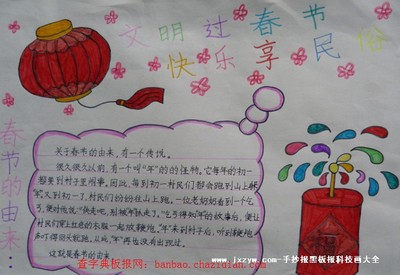 文明过春节
快乐享民俗
春节的由来：
关于春节的由来，有一个传说。
很久很久以前，有一个叫“年”的怪物。它每年的初一
都要到村子里闹事。因此，每到初一村民们都会跑到山上
又到初一了，村民们纷纷往山上跑。一位老奶奶看到一个乞
丐，便对他说：“快走吧，别被年
年”来到村子后，听到鞭炮
这就是春节的由来
查字典板报网：banbao.chazidian.com
www.jxzyw.com-手抄报黑板报科技画大全